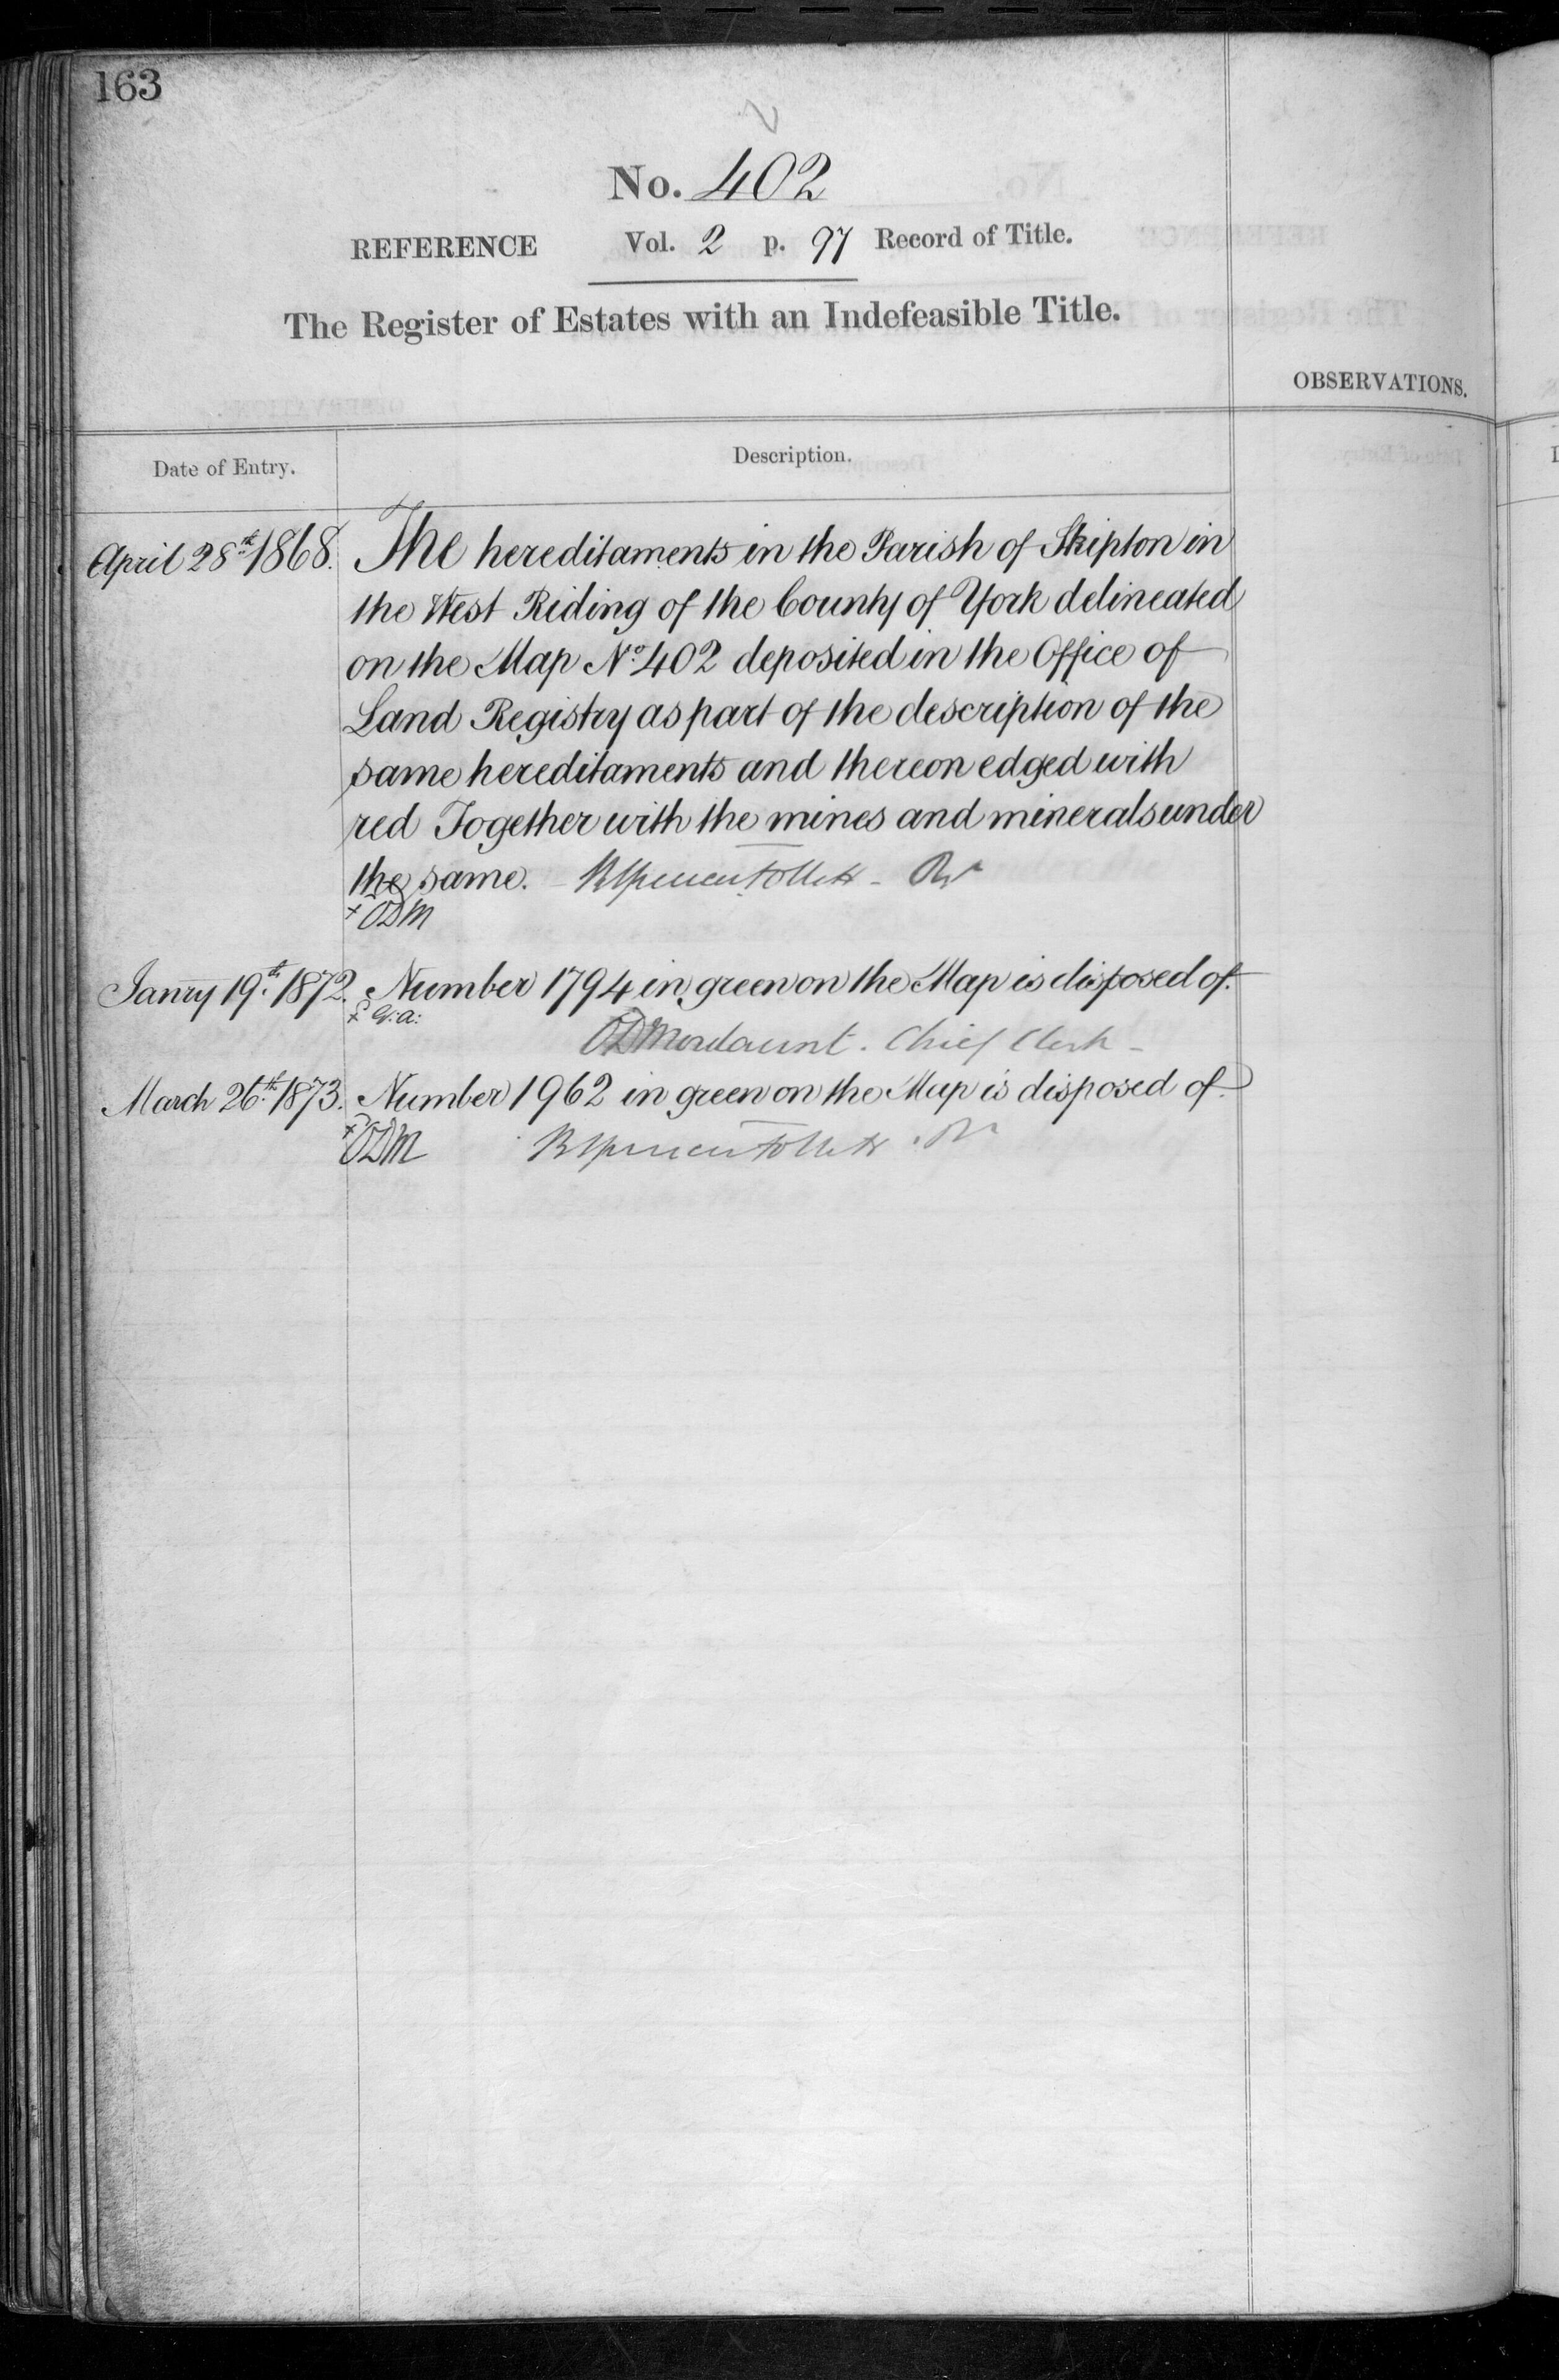 163
No. 402
REFERENCE Vol. 2 p. 97 Record of Title.
The Register of Estates with an Indefeasible Title.
OBSERVATIONS.
Date of Entry. Description.
April 28th 1868. The hereditaments in the Parish of Skipton in
the West Riding of the County of York delineated
on the Map No. 402 deposited in the Office of
Land Registry as part of the description of the
same hereditaments and thereon edged with
red Together with the mines and minerals under
the same.
+ ODM
Janry 19th 1872. Number 1794 in green on the Map is disposed of.
ODMordaunt. Chief Clerk
March 26th 1873. Number 1962 in green on the Map is disposed of.
+ ODM